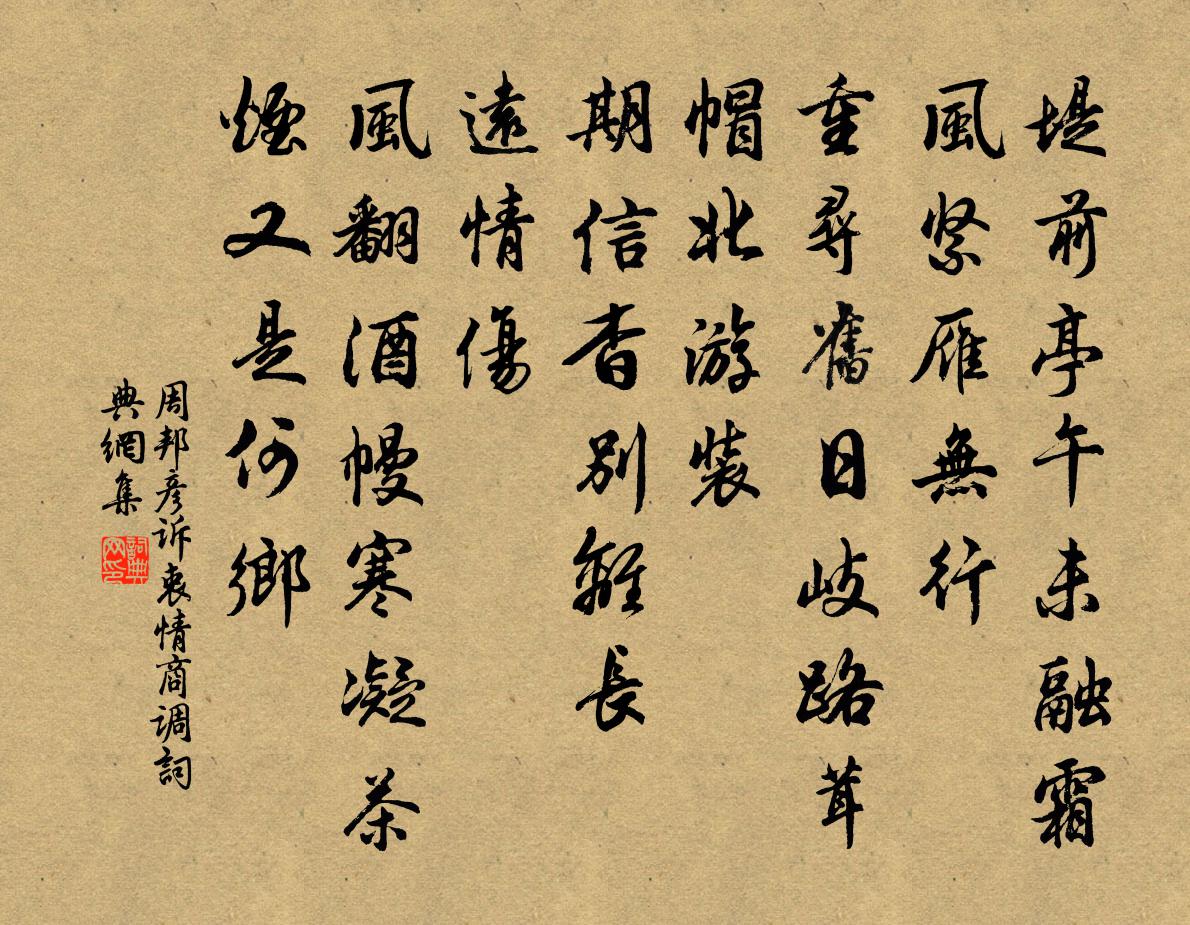 堤前亭午未融霜
風緊雁無行
重尋舊日岐路茸
帽北游裝
期信杳別離長
遠情傷
風翻酒幔寒凝茶
煙又是何鄉
周邦彦诉衷情商调詞
典網集
詞典
网印